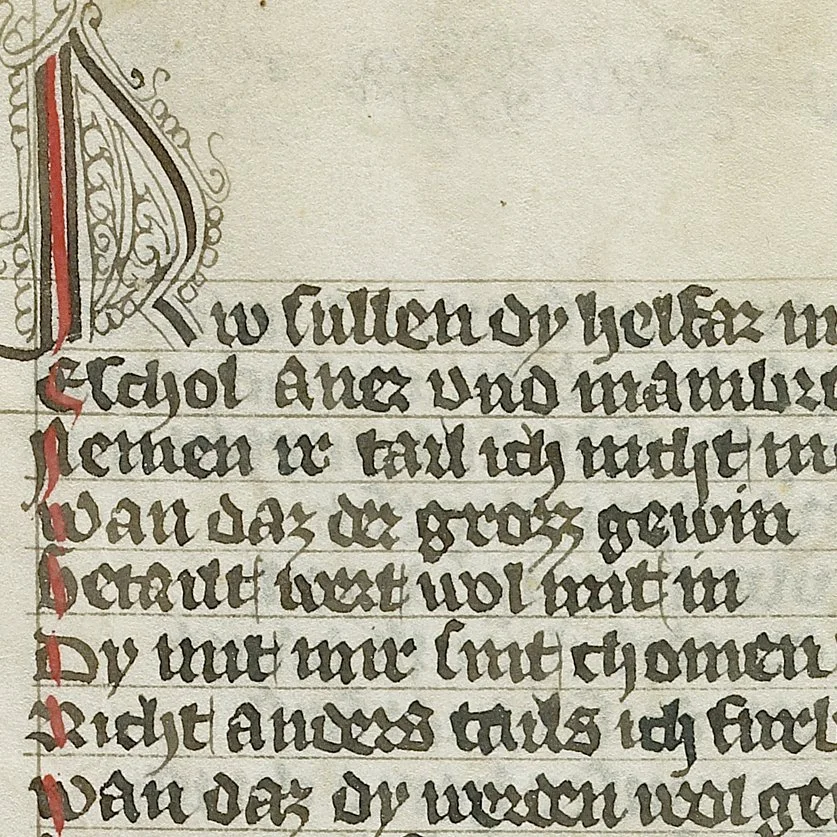 Nw sullen dy helfar
Eschol Aner vnd mambre
Nemen ir tail ich nicht
wan daz der grozz gewin
Getailt wert wol mit in
Dy mit mir sint chomen
Nicht anders tails ich
wan daz dy werden wol